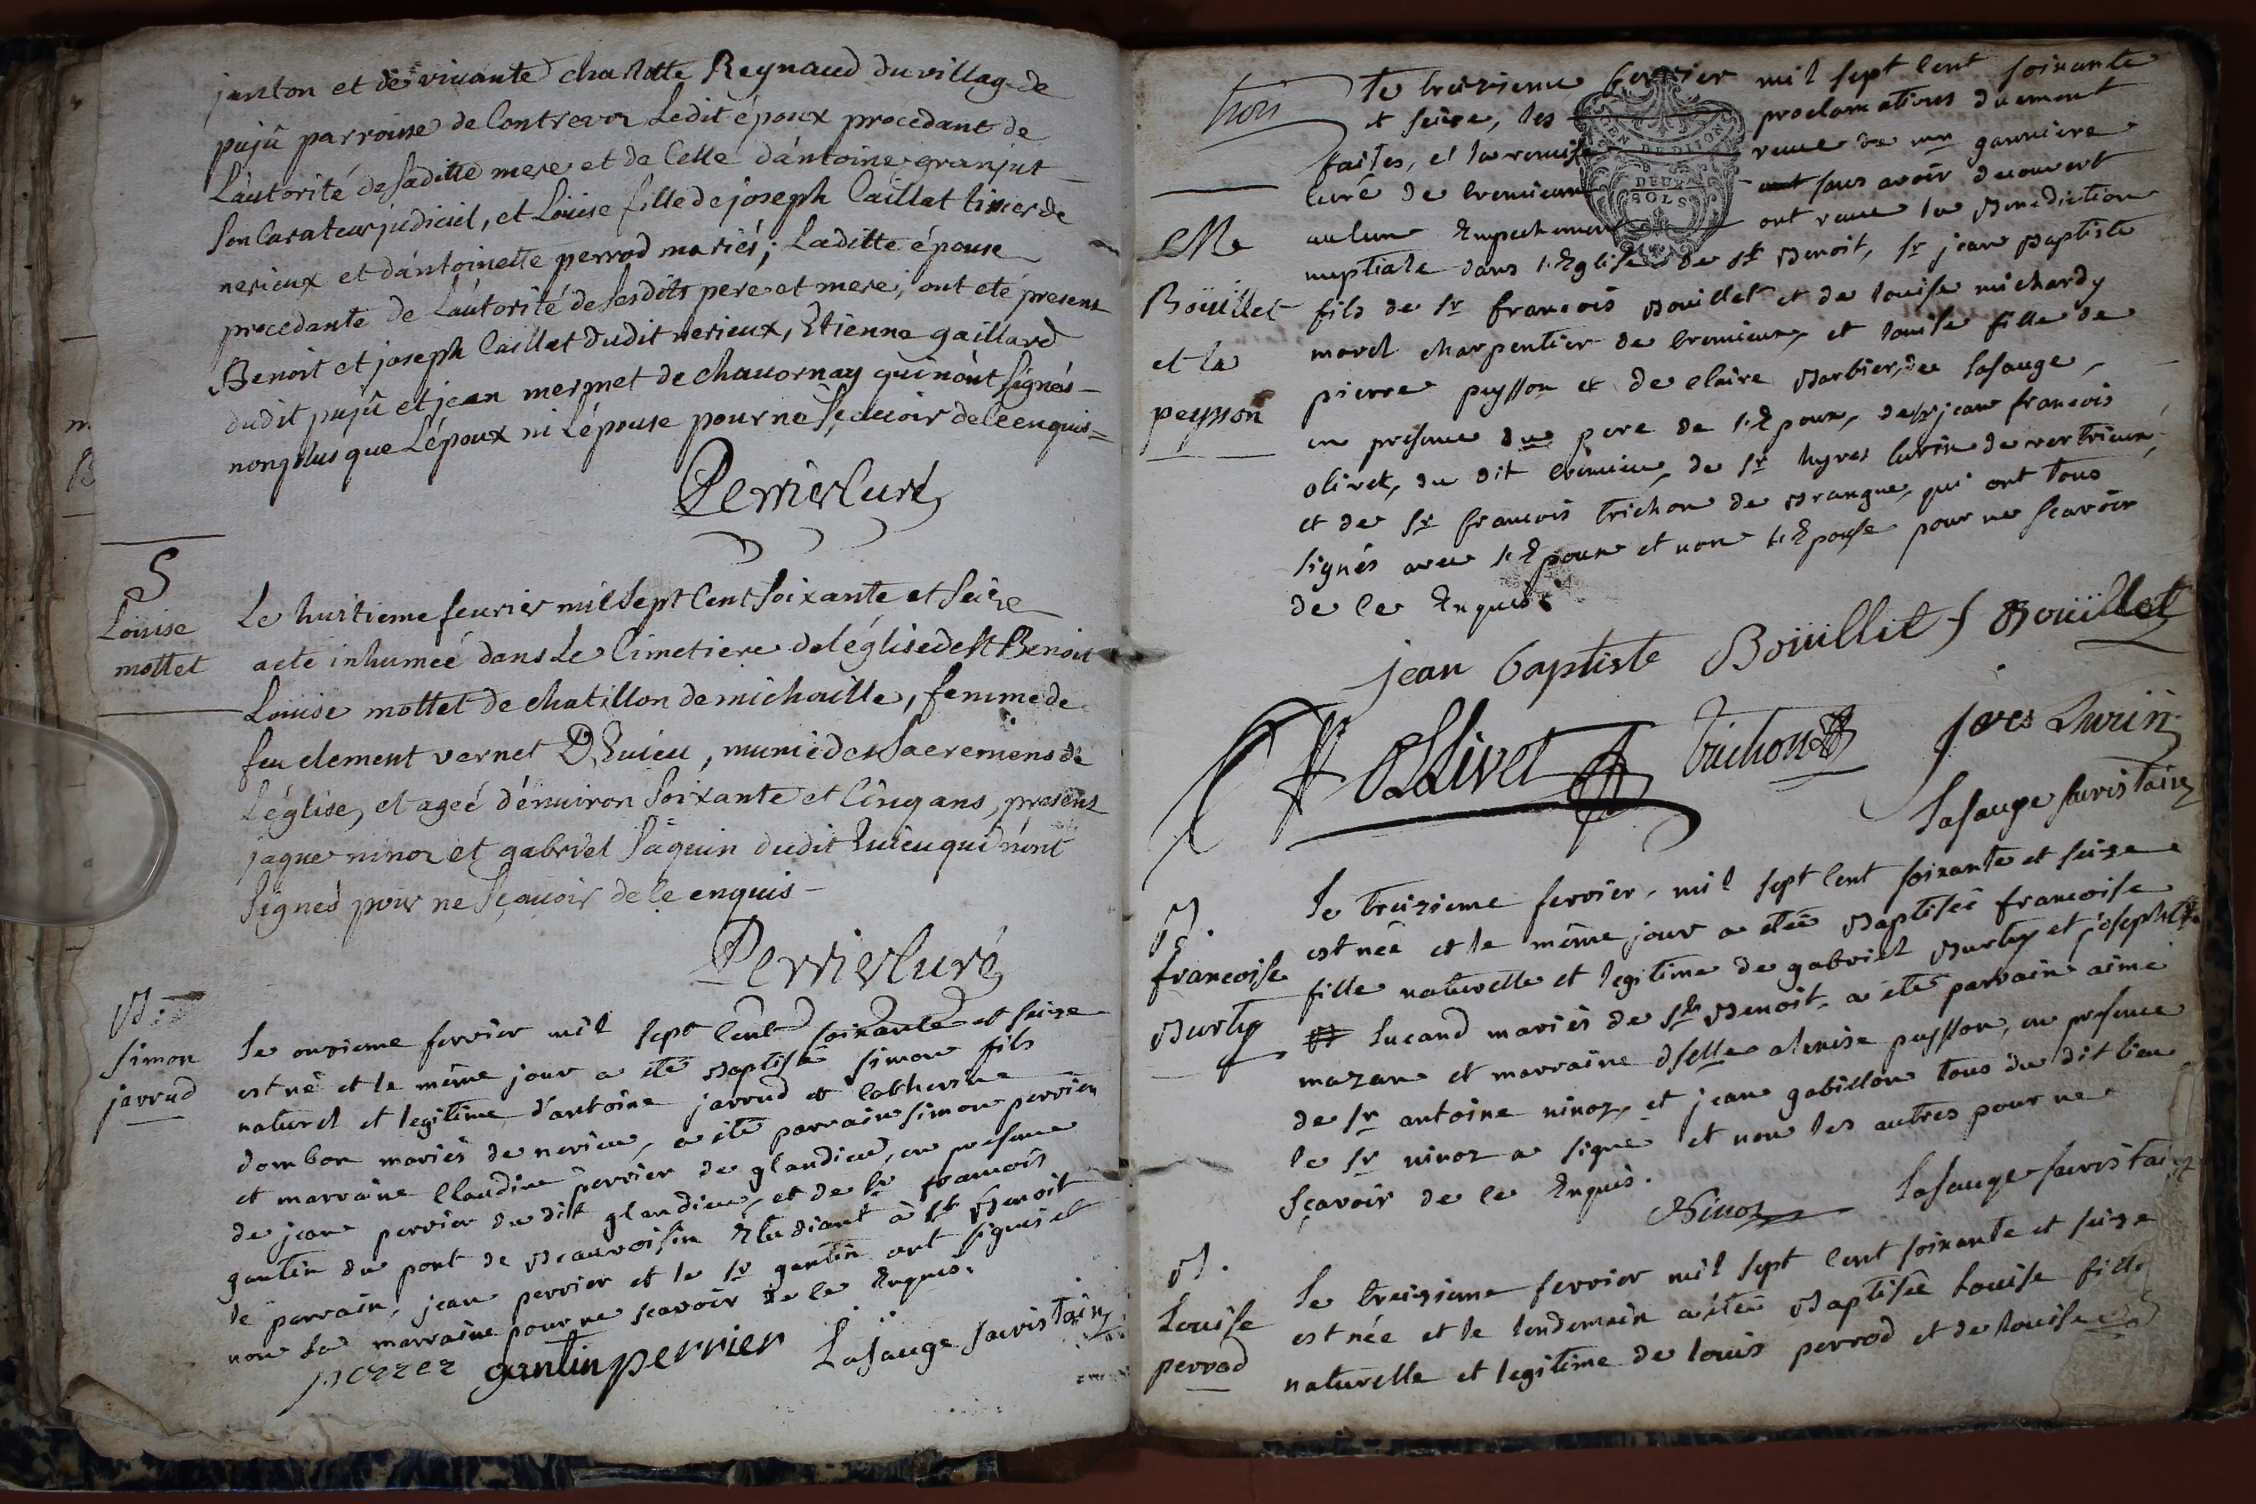 janton et de vivante charlotte Reynaud du village de
pujû parroisse de Contrevoz Ledit époux procedant de
L'autorité de sa ditte mere et de Celle d'antoine granjut
son Curateur judiciel, et Louise fille de joseph Caillat tixier de
nerieux et d'antoinette perrod mariés; Laditte épouse
procedante de L'autorité de sesdits pere et mere; ont eté presens
Benoit et joseph Caillat dudit nerieux, Etienne gaillard
dudit pujû et jean mermet de chavornay qui n'ont signés
non plus que L'époux ni L'épouse pour ne sçavoir de ce enquis =
Perrier Curé
S
Louise
mottet
Le huitieme fevrier mil sept Cent soixante et seize
a eté inhumeé dans Le Cimetiere de l'église de St Benoit
Louise mottet de chatillon de michaille, femme de
feu clement vernet D'Euieu, munie des sacremens de
L'église, et ageé d'environ soixante et Cinq ans, presens
jaque ninoz et gabriel saquin dudit Euieu qui n'ont
signés pour ne sçavoir de ce enquis -
Perrier Curé
B.
simon
jarrud
Le onzieme fevrier mil sept Cent soixante et seize
est né et le même jour a eté Baptisé simon fils
naturel et legitime d'antoine jarrud et Catherine
dombon mariés de nerieu, a eté parrain simon perrier
et marraine Claudine perrier de glandieu, en presence
de jean perrier du dit glandieu, et de Sr francois
gantin du pont de Beauvoisin Etudiant à St Benoit
le parrain, jean perrier et le Sr gantin ont signés et
non la marraine pour ne scavoir de ce Enquis.
perrier gantin perrier Lasauge sacristain
trois
Me
Boüillet
et la
peysson
Le treizieme fevrier mil sept Cent soixante
et seize, les proclamations duement
faites, et la remise reçue de mr
Curé de Cremieux sans avoir decouvert
aucun Empechement ont reçue la Benediction
nuptiale dans l'Eglise de St Benoit, Sr jean Baptiste
fils de Sr francois Bouillet et de louise michardy
march charpentier de Cremieux, et louise fille de
pierre peysson et de claire Barbier, de Lasauge,
en presence du pere de l'Epoux, de Sr jean francois
olivet, du dit Crêmieu, de Sr hyves Curin de vertrieux,
et de Sr francois trichon de Brangue, qui ont tous
signés avec l'Epoux et non l'Epouse pour ne scavoir
de ce Enquis.
jean baptiste Boüillet f Boüillet
Ollivet trichon yves Curin
Lasauge sacristain
B.
francoise
Burty
Le treizieme fevrier, mil sept Cent soixante et seize
est née et le même jour a eteé Baptiseé francoise
fille naturelle et legitime de gabriel Burty et josephte
Lucand mariés de St Benoit. a eté parrain aimé
mazan et marraine dselle peysson, en presence
de Sr antoine ninoz, et jean gobillon tous du dit lieu
le Sr ninoz a signé et non les autres pour ne
sçavoir de ce Enquis.
Ninoz Lasauge sacristain
B.
Louise
perrod
Le treizieme fevrier mil sept Cent soixante et seize
est née et le lendemain a eteé Baptiseé Louise fille
naturelle et legitime de louis perrod et de louise